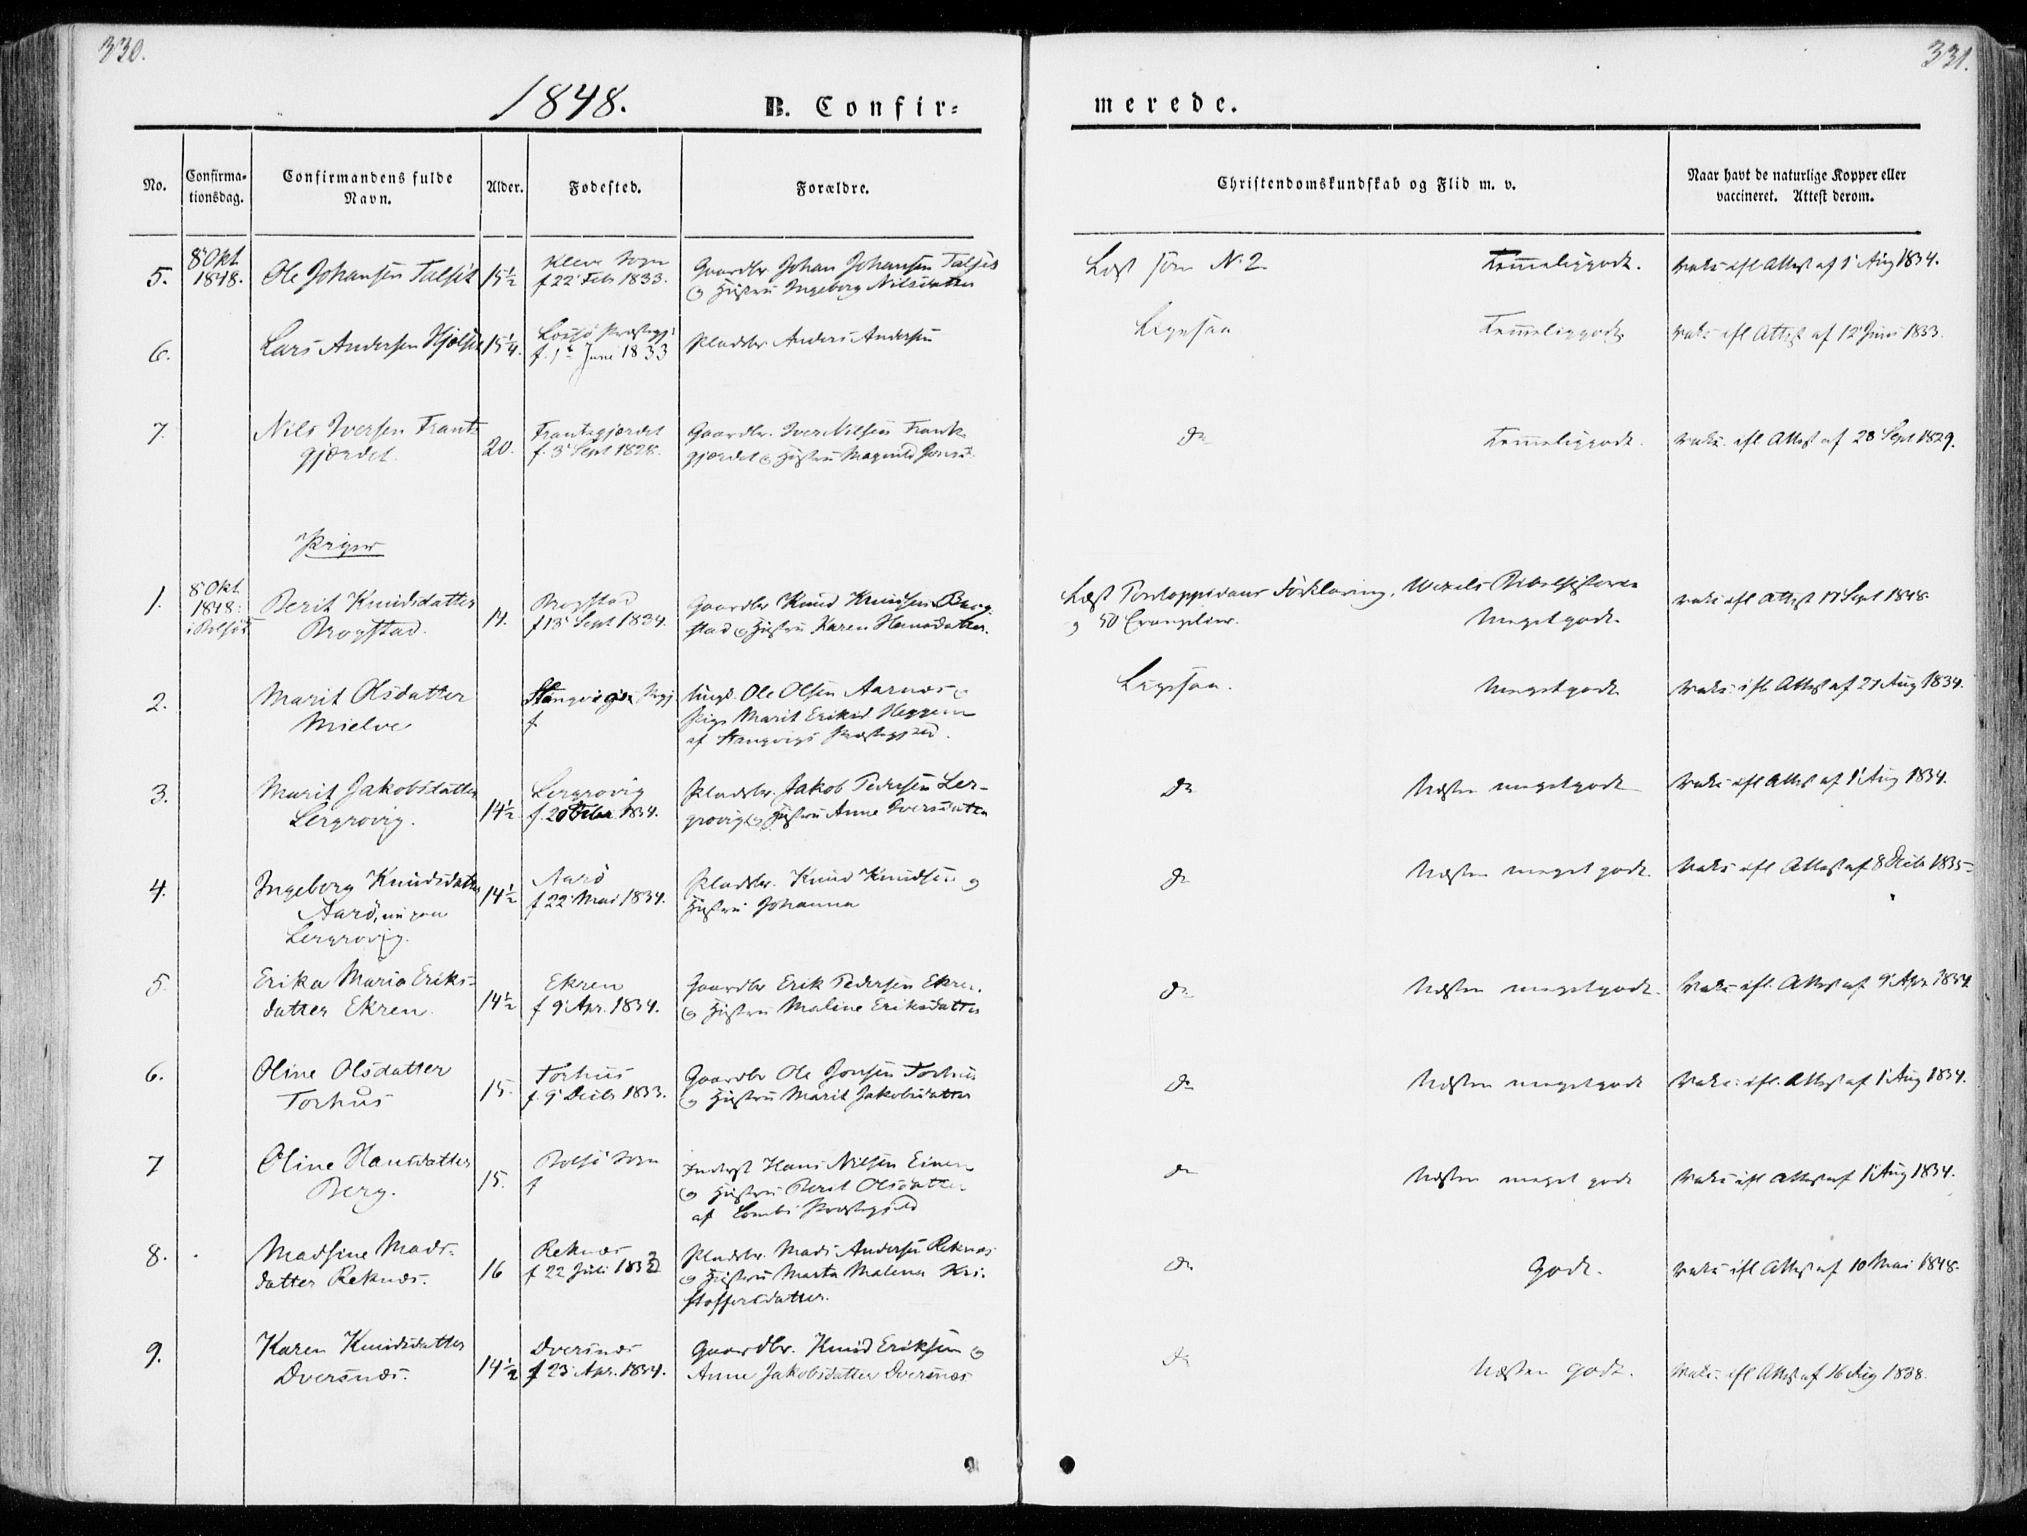 330.
331.
1848.
B. Confir=
merede.
No.
Confirma-
tionsdag.
Confirmandens fulde
Navn.
Alder.
Fødested.
Forældre.
Christendomskundskab og Flid m. v.
Naar havt de naturlige Kopper eller
vaccineret. Attest derom.
5.
8 Okt
1848.
Ole Johansen Talsit
15½
Kleve Sogn
f 22 Feb 1833.
Gaardbr. Johan Johansen
Hustru Ingeborg Nilsdatter
Læst som No 2
Temmeliggodt.
Vakc ifl Attest af 1 Aug 1834.
6.
Lars Andersen
15¼.
f. 1 Juni 1833
Pladsbr Anders Andersen
Ligesaa
Temmeliggodt
Vakc ifl Attest af 12 Juni 1833.
7.
Nils Iversen Frants-
gjærdet.
20.
Frantsgjærdet
f. 3 Sept 1828.
Gaardbr. Iver Nilsen
gjærdet & Hustru
do
Temmeliggodt.
Vakc. ifl. Attest af 28 Sept 1829.
Piger
1.
8 Okt
1848.
i Bolsø
Berit Knudsdatter
Brogstad.
14.
Brogstad
f 18 Sept 1834.
Gaardbr Knud Knudsen Brog-
stad & Hustru Karen Hansdatter.
Læst Pontoppidans Forklaring, Wexels Bibelhistorie
og 50 Evangelier.
Megetgodt.
Vakc ifl Attest 17 Sept 1848.
2.
Marit Olsdatter
Mielve
f
Ungk. Ole Olsen Aarnæs &
Pige Marit Eriksd Heggem
af Stangvigs Præstegjeld.
Ligesaa.
Megetgodt
Vakc. ifl. Attest af 21 Aug 1834.
3.
Marit Jakobsdatter
Lergrovig.
14½
Lergrovig
f. 20 Febr 1834.
Pladsbr. Jakob Pedersen Ler-
grovig & Hustru Anne Iversdatter
do
Næsten megetgodt
Vakc ifl Attest af 1 Aug 1834.
4.
Ingeborg Knudsdatter
Aarø, nu paa
Lergrovig.
14½
Aarø
f 22 Mai 1834.
Pladsbr. Knud Knudsen &
Hustru Johanna
do
Næsten meget godt.
Vakc ifl Attest af 8 Decb 1835.
5.
Erika Maria Eriks-
datter Ekren.
14½
Ekren
f 9 Apr. 1834.
Gaardbr Erik Pedersen Ekren.
& Hustru Maline Eriksdatter
do
Næsten megetgodt.
Vakc ifl. Attest af 9 Apr. 1834.
6.
Oline Olsdatter
Torhus
15.
Torhus
f. 9 Decbr 1833.
Gaardbr Ole Jonsen Torhus
& Hustru Marit Jakobsdatter
do
Næsten megetgodt
Vakc. ifl. Attest af 1 Aug 1834.
7
Oline Hansdatter
Berg.
15.
Bolsø Sogn
f
Inderst Hans Nilsen
& Hustru Berit Olsdatter
af Lombs Præstegjeld
do
Næsten meget godt
Vakc ifl Attest af 1 Aug 1834.
8.
Madsine Mads-
datter Reknæs.
16
Reknæs
f 22 Juli 1832
Pladsbr. Mads Andersen Reknæs
& Hustru Marta Malena Kri-
stoffersdatter.
do
Godt.
Vakc ifl Attest af 10 Mai 1848.
9.
Karen Knudsdatter
Dversnæs.
14½
Dversnæs
f 23 Apr. 1834.
Gaardbr. Knud Eriksen &
Anne Jakobsdatter Dversnæs
do
Næsten godt.
Vakc. ifl Attest af 16 Aug 1838.